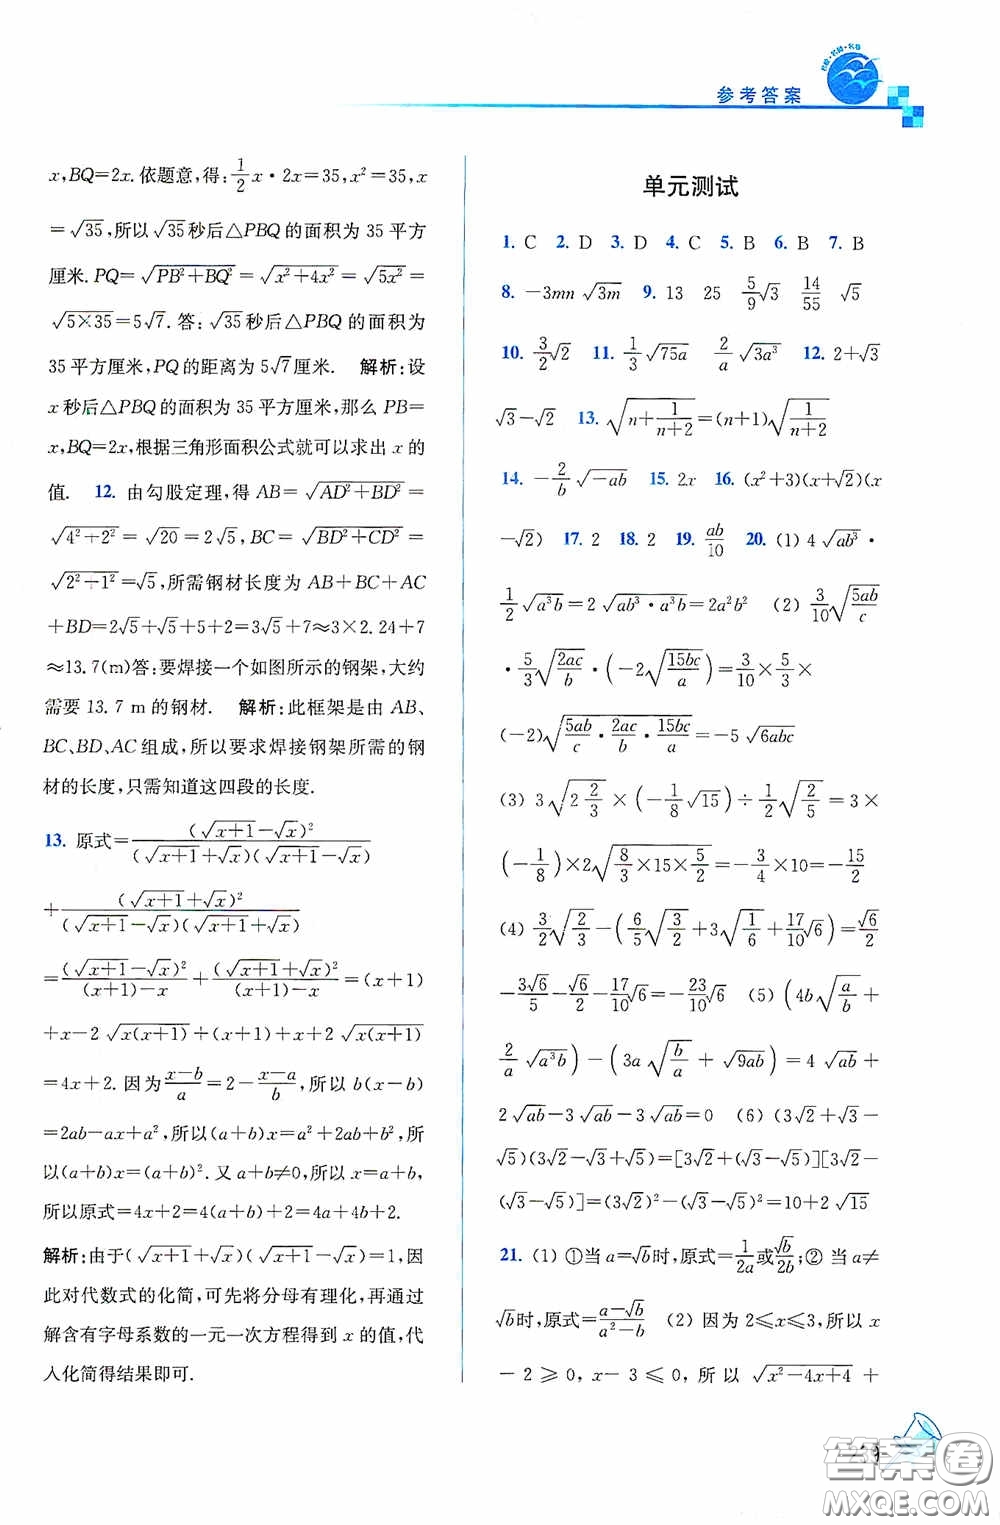 名校·名师·名卷
参考答案
x,BQ=2x. 依题意,得:1/2x·2x=35,x²=35,x
=√35,所以√35秒后△PBQ的面积为35平方
厘米.PQ=√(PB²+BQ²)=√(x²+4x²)=√(5x²)=
√(5×35)=5√7.答:√35秒后△PBQ的面积为
35平方厘米,PQ的距离为5√7厘米. 解析:设
x秒后△PBQ的面积为35平方厘米,那么PB=
x,BQ=2x,根据三角形面积公式就可以求出x的
值. 12. 由勾股定理,得AB=√(AD²+BD²)=
√(4²+2²)=√20=2√5,BC=√(BD²+CD²)=
√(2²+1²)=√5,所需钢材长度为AB+BC+AC
+BD=2√5+√5+5+2=3√5+7≈3×2.24+7
≈13.7(m)答:要焊接一个如图所示的钢架,大约
需要13.7 m的钢材. 解析:此框架是由AB、
BC、BD、AC组成,所以要求焊接钢架所需的钢
材的长度,只需知道这四段的长度.
13. 原式=(√(x+1)-√x)²/((√(x+1)+√x)(√(x+1)-√x))
+(√(x+1)+√x)²/((√(x+1)-√x)(√(x+1)+√x))
=(√(x+1)-√x)²/((x+1)-x)+(√(x+1)+√x)²/((x+1)-x)=(x+1)
+x-2√(x(x+1))+(x+1)+x+2√(x(x+1))
=4x+2. 因为(x-b)/a=2-(x-a)/b,所以b(x-b)
=2ab-ax+a²,所以(a+b)x=a²+2ab+b²,
所以(a+b)x=(a+b)². 又a+b≠0,所以x=a+b,
所以原式=4x+2=4(a+b)+2=4a+4b+2.
解析:由于(√(x+1)+√x)(√(x+1)-√x)=1,因
此对代数式的化简,可先将分母有理化,再通过
解含有字母系数的一元一次方程得到x的值,代
入化简得结果即可.
单元测试
1. C 2. D 3. D 4. C 5. B 6. B 7. B
8. -3mn√(3m) 9. 13 25 5/9√3 14/55 √5
10. 3/2√2 11. 1/3√(75a) 2/a√(3a³) 12. 2+√3
√3-√2 13. √(n+1/(n+2))=(n+1)√(1/(n+2))
14. -2/b√(-ab) 15. 2x 16. (x²+3)(x+√2)(x
-√2) 17. 2 18. 2 19. ab/10 20. (1) 4√(ab³)·
1/2√(a³b)=2√(ab³·a³b)=2a²b² (2) 3/10√(5ab/c)
·5/3√(2ac/b)·(-2√(15bc/a))=3/10×5/3×
(-2)√(5ab/c·2ac/b·15bc/a)=-5√(6abc)
(3) 3√(2 2/3)×(-1/8√15)÷1/2√(2/5)=3×
(-1/8)×2√(8/3×15×5/2)=-3/4×10=-15/2
(4) 3/2√(2/3)-(6/5√(3/2)+3√(1/6)+17/10√6)=√6/2
-3√6/5-√6/2-17/10√6=-23/10√6 (5) (4b√(a/b)+
2/a√(a³b))-(3a√(b/a)+√(9ab))=4√(ab)+
2√(ab)-3√(ab)-3√(ab)=0 (6) (3√2+√3-
√5)(3√2-√3+√5)=[3√2+(√3-√5)][3√2-
(√3-√5)]=(3√2)²-(√3-√5)²=10+2√15
21. (1) ①当a=√b时,原式=1/2a或√b/2b;② 当a≠
√b时,原式=(a-√b)/(a²-b) (2) 因为2≤x≤3,所以x
-2≥0,x-3≤0,所以√(x²-4x+4)+
答案圈
MXQE.COM